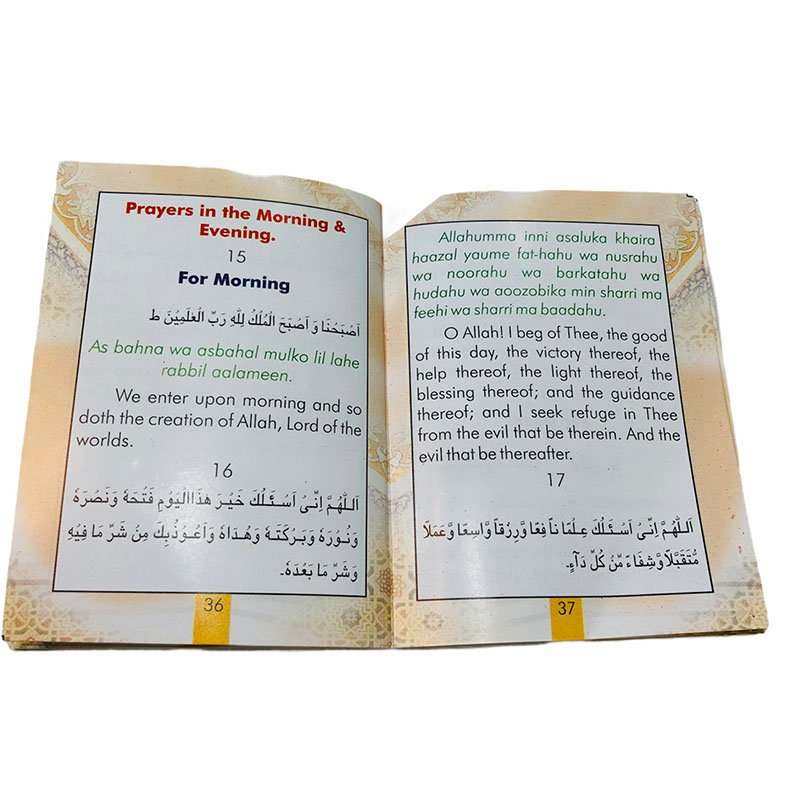 Prayers in the Morning &
Evening.
15
For Morning
اَصْبَحْنَا وَ اَصْبَحَ الْمُلْكُ لِلّٰهِ رَبِّ الْعٰلَمِيْنَ ط
As bahna wa asbahal mulko lil lahe
rabbil aalameen.
We enter upon morning and so
doth the creation of Allah, Lord of the
worlds.
16
اَللّٰهُمَّ اِنِّىْ اَسْئَلُكَ خَيْرَ هٰذَاالْيَوْمِ فَتْحَهٗ وَنَصْرَهٗ
وَنُوْرَهٗ وَبَرْكَتَهٗ وَهُدَاهُ وَاَعُوْذُبِكَ مِنْ شَرِّ مَا فِيْهِ
وَشَرِّ مَا بَعْدَهٗ۔
36
Allahumma inni asaluka khaira
haazal yaume fat-hahu wa nusrahu
wa noorahu wa barkatahu wa
hudahu wa aoozobika min sharri ma
feehi wa sharri ma baadahu.
O Allah! I beg of Thee, the good
of this day, the victory thereof, the
help thereof, the light thereof, the
blessing thereof; and the guidance
thereof; and I seek refuge in Thee
from the evil that be therein. And the
evil that be thereafter.
17
اَللّٰهُمَّ اِنِّىْ اَسْئَلُكَ عِلْمًا نَا فِعًا وَّرِزْقاً وَّاسِعًا وَّعَمَلًا
مُّتَقَبَّلًا وَّشِفَاءً مِّنْ كُلِّ دَآءٍ۔
37